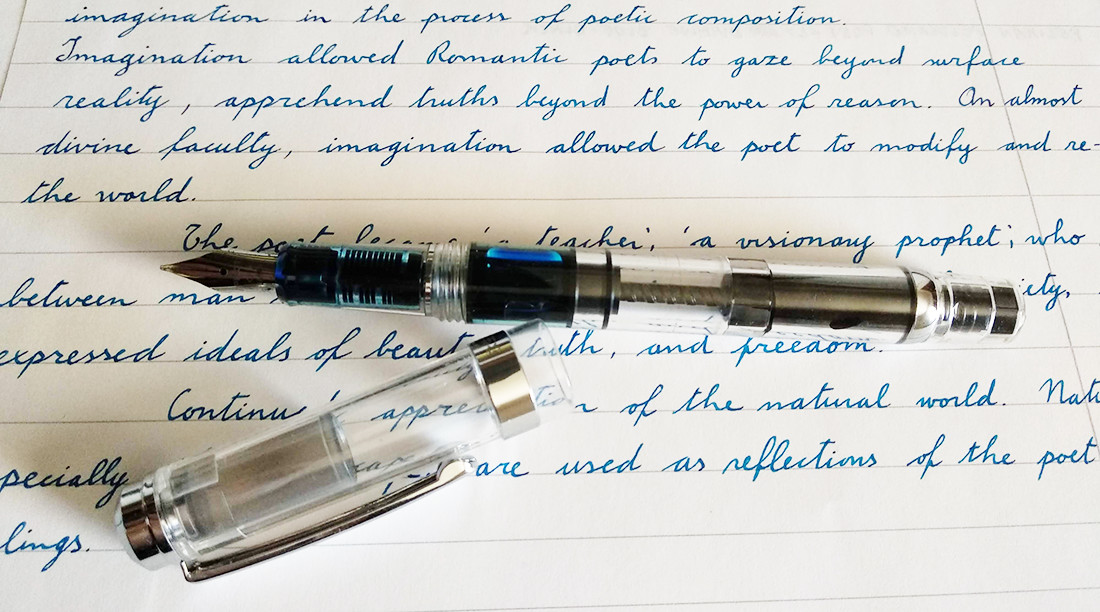 imagination in the process of poetic composition.
Imagination allowed Romantic poets to gaze beyond surface
reality, apprehend truths beyond the power of reason. An almost
divine faculty, imagination allowed the poet to modify and re-
the world.
The poet became 'a teacher', 'a visionary prophet', who
between man
expressed ideals of beauty, truth, and freedom.
of the natural world.
pecially are used as reflections of the poet
lings.